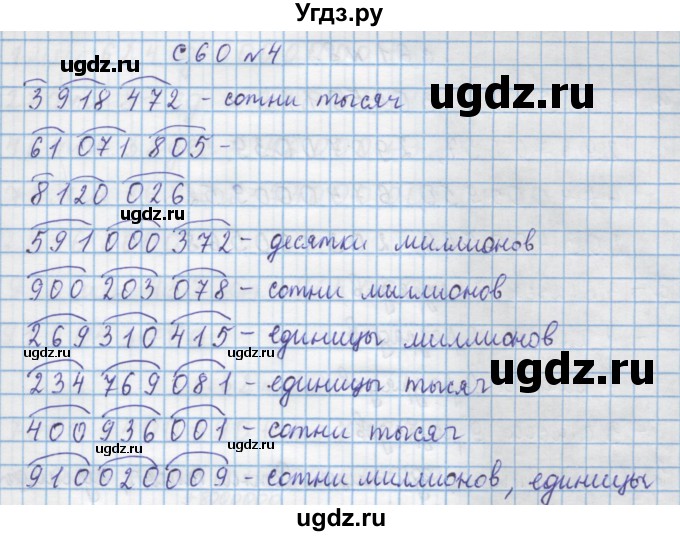 Угдз.ру
с 60 №4
3 918 472 - сотни тысяч
61 071 805 -
8 120 026
591 000 372 - десятки миллионов
900 203 078 - сотни миллионов
269 310 415 - единицы миллионов
234 769 081 - единицы тысяч
400 936 001 - сотни тысяч
910 020 009 - сотни миллионов, единицы
ugdz.ru
ugdz.ru
ugdz.ru
ugdz.ru
ugdz.ru
ugdz.ru
ugdz.ru
ugdz.ru
ugdz.ru
ugdz.ru
ugdz.ru